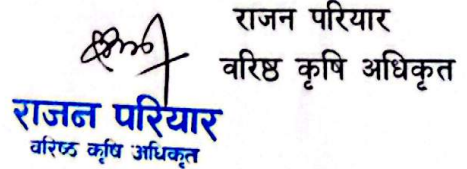 राजन परियार
वरिष्ठ कृषि अधिकृत
राजन परियार
वरिष्ठ कृषि अधिकृत